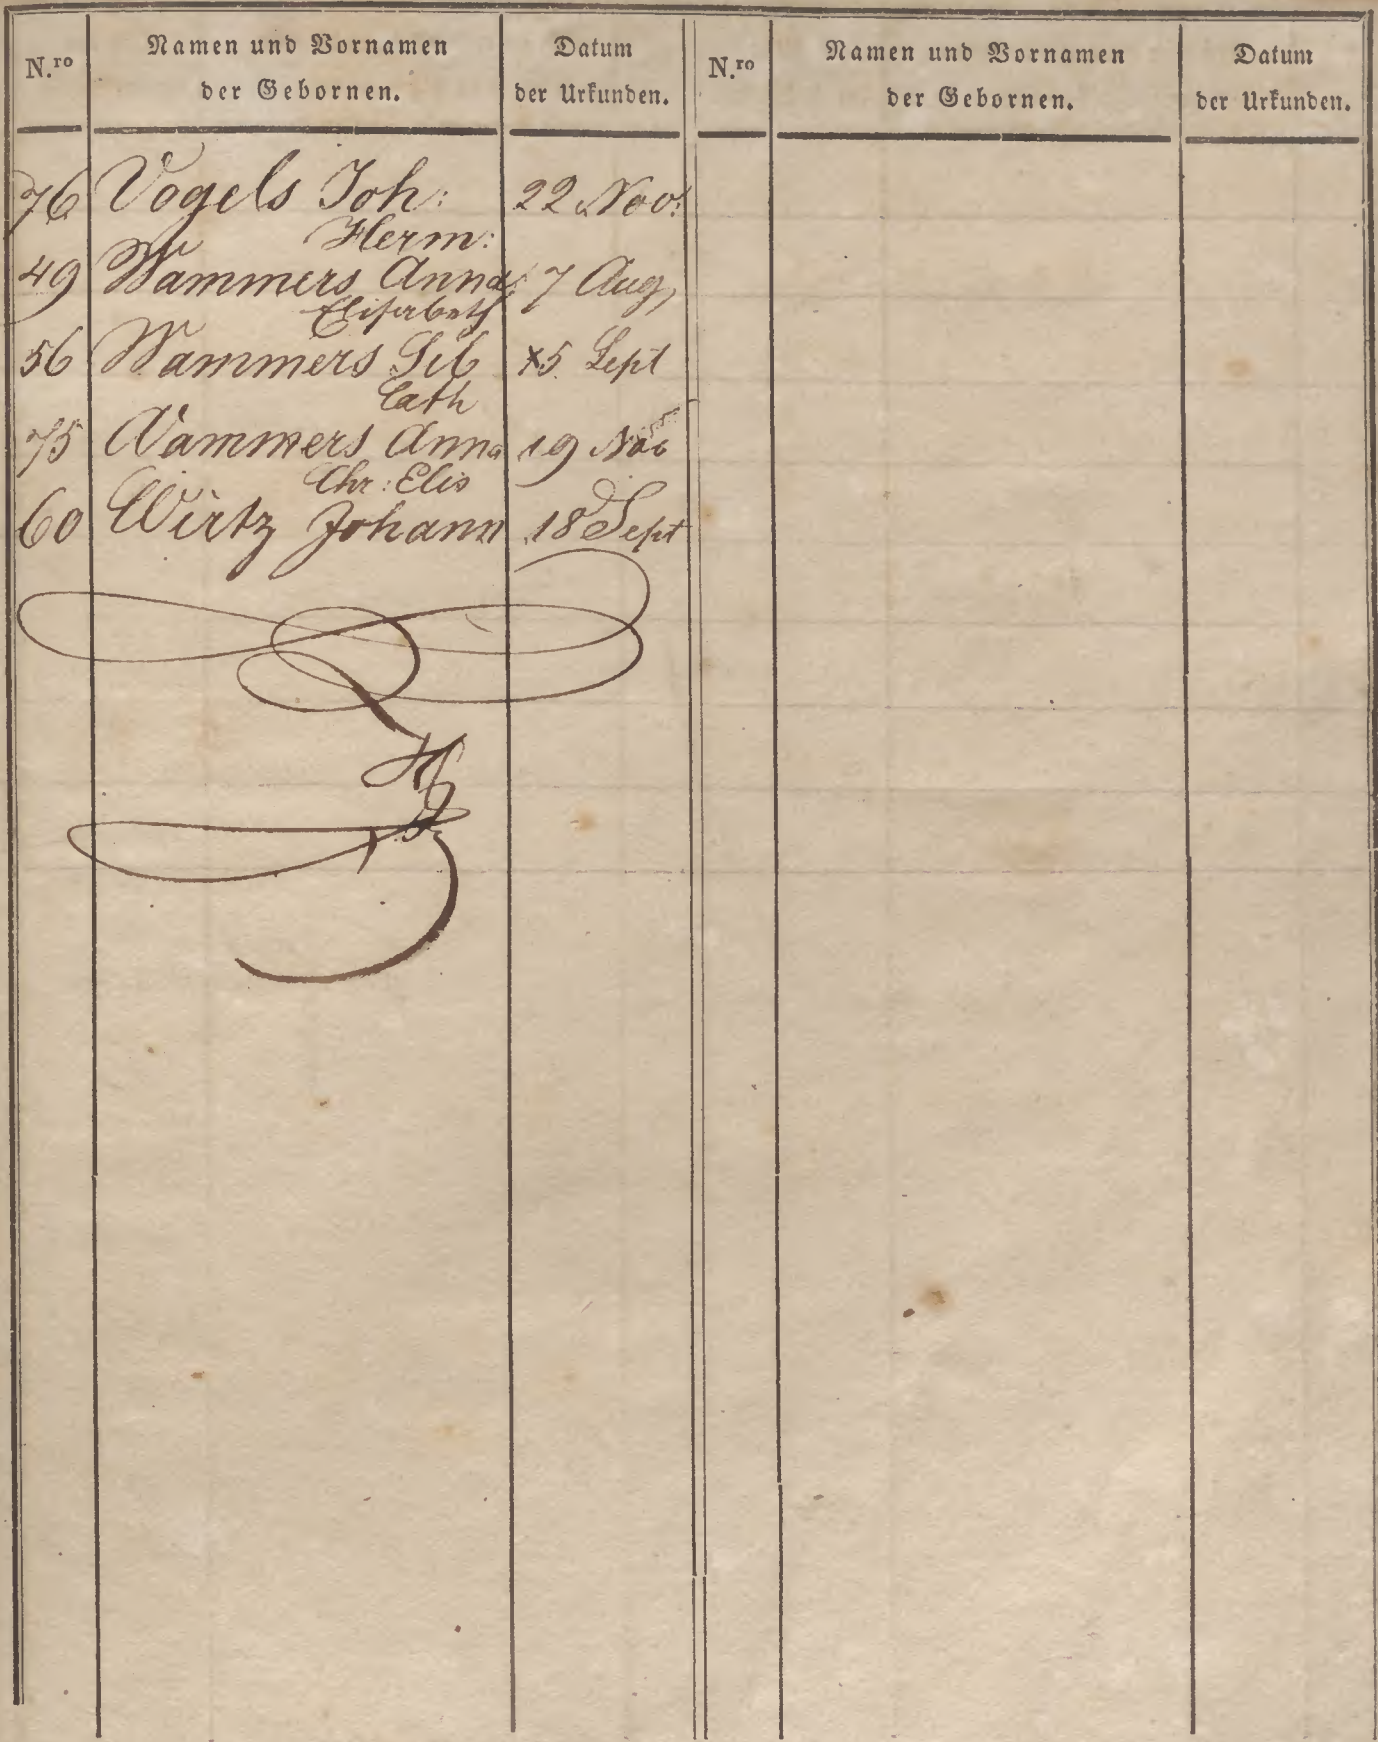 N.ro Namen und Vornamen der Gebornen. Datum der Urkunden. N.ro Namen und Vornamen der Gebornen. Datum der Urkunden.
76 Vogels Joh: 22 Nov:
Herm:
49 Wammers Anna 7 Aug,
Elisabeth
56 Wammers Sib 5 Sept
Cath
75 Wammers Anna 19 Nov
Chr: Elis
60 Wirtz Johann 18 Sept